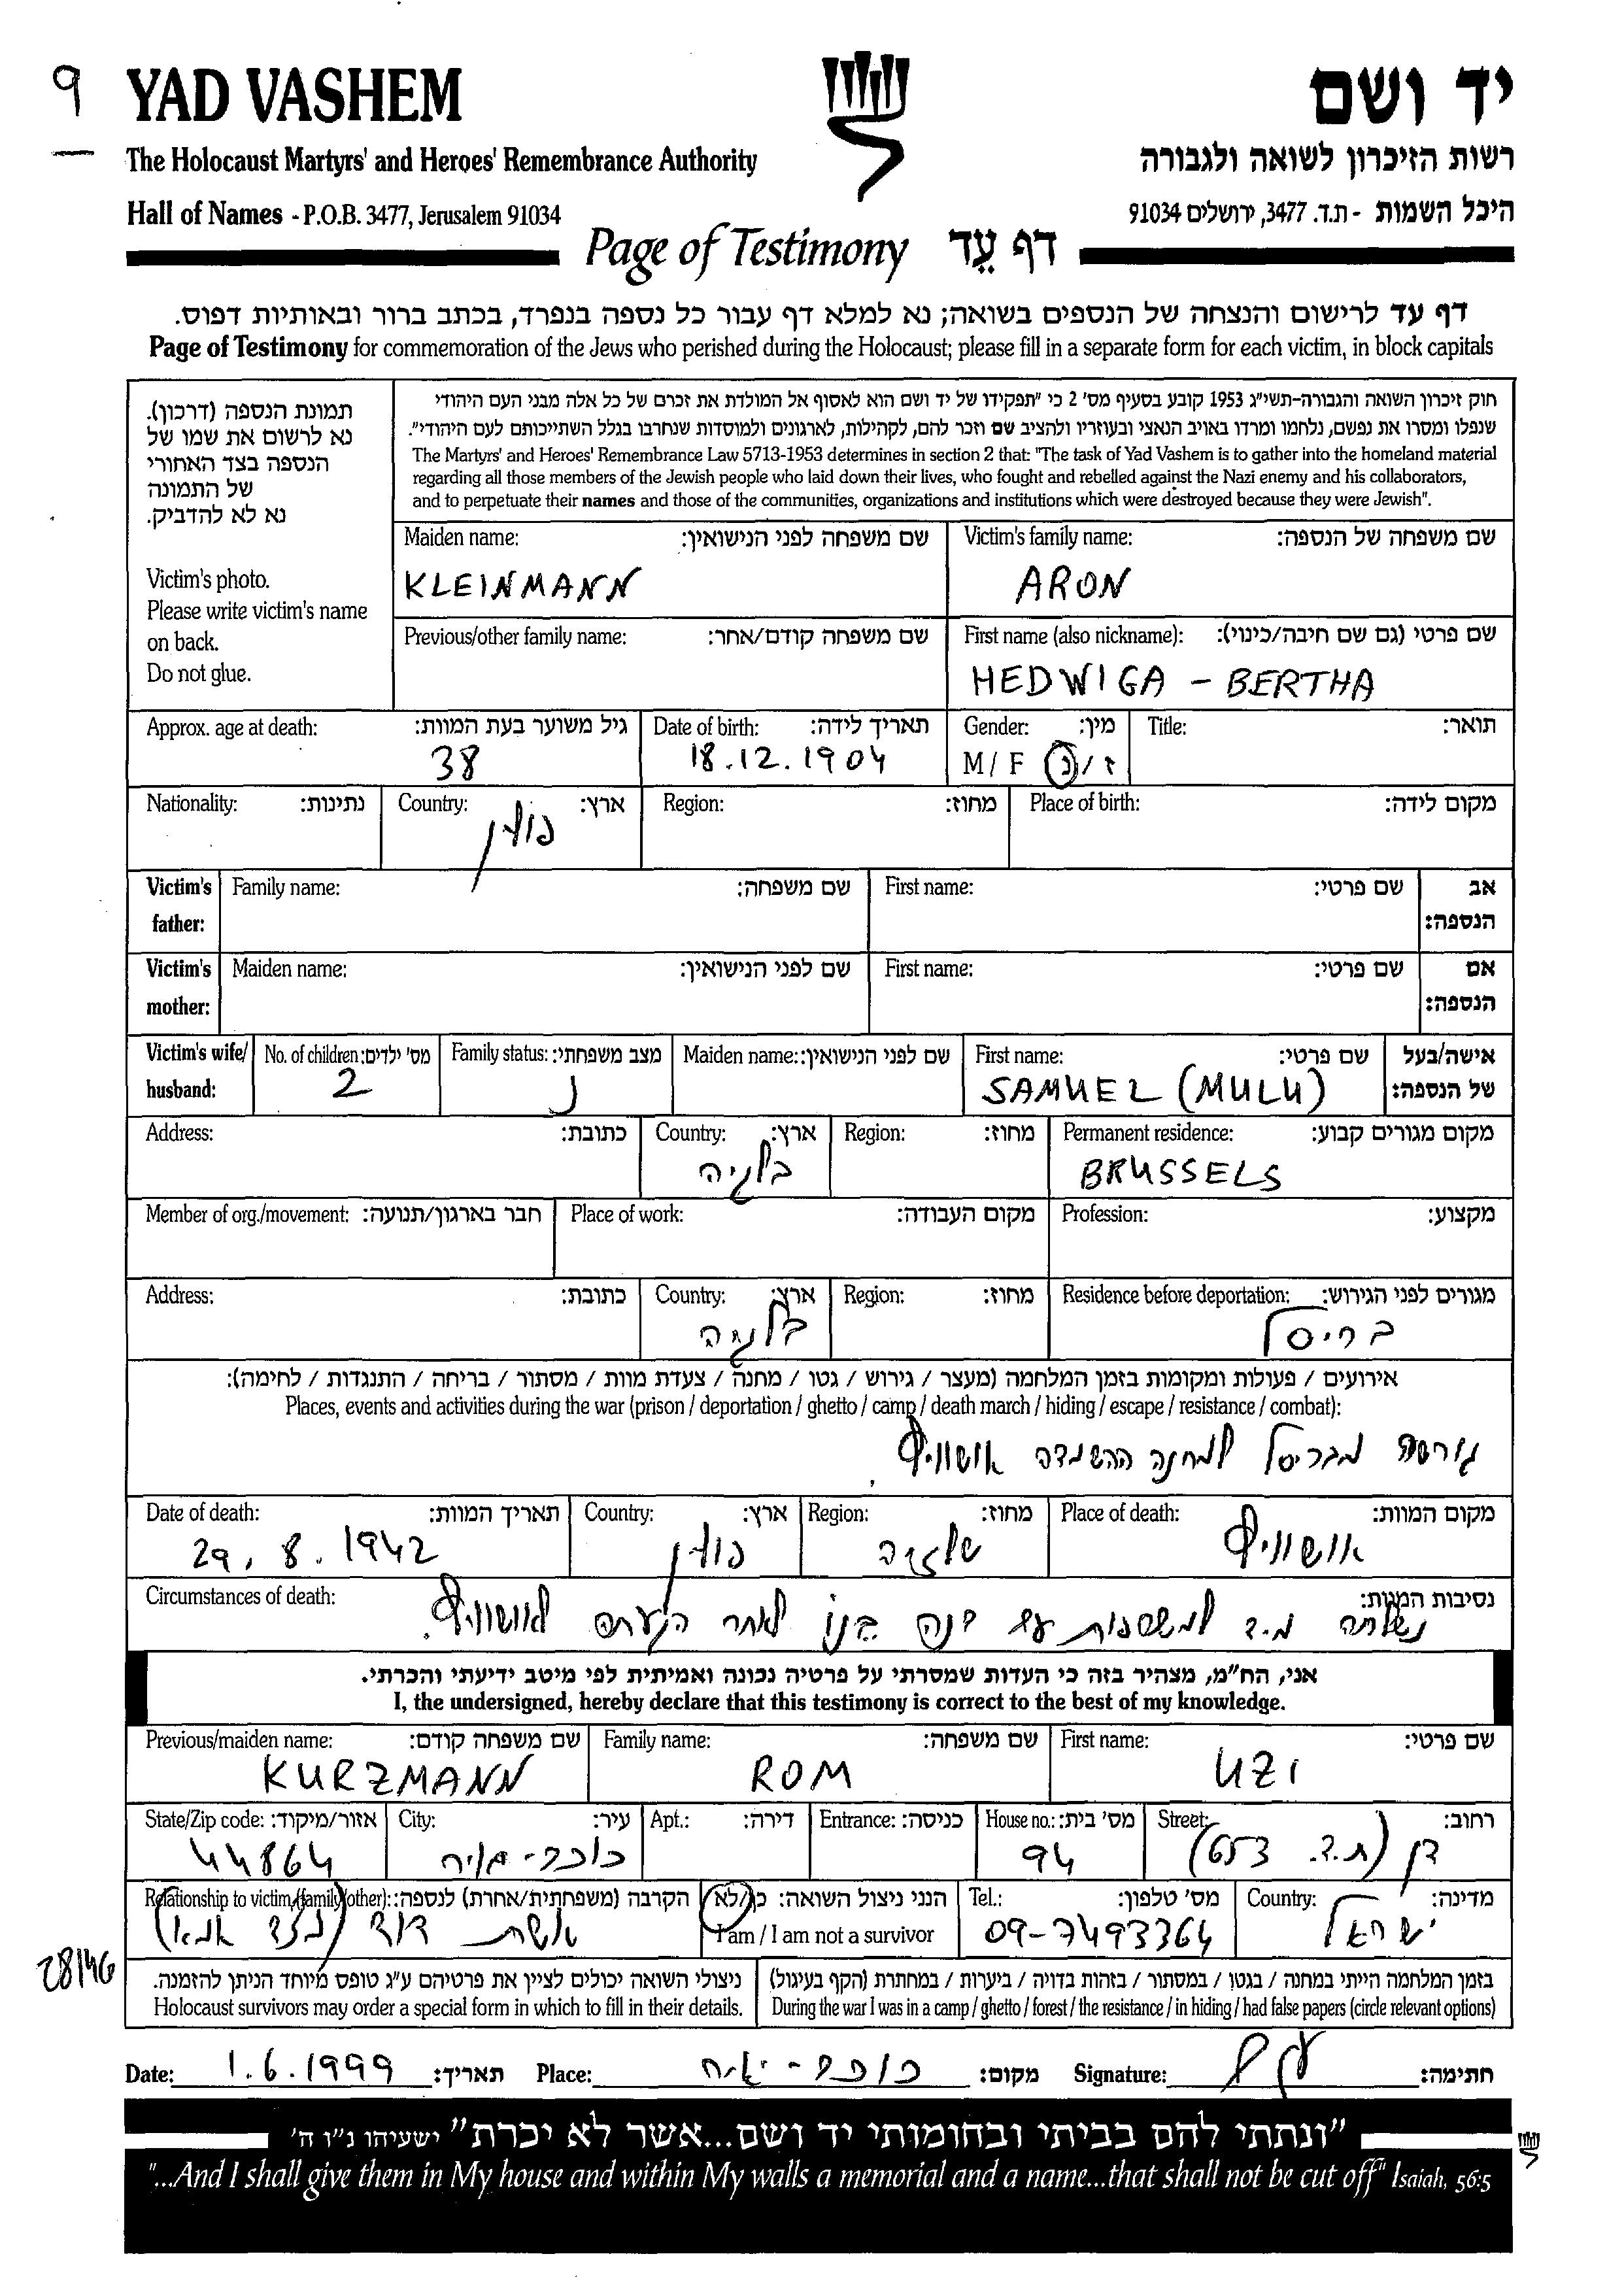 9
YAD VASHEM יד ושם
The Holocaust Martyrs' and Heroes' Remembrance Authority רשות הזיכרון לשואה ולגבורה
Hall of Names - P.O.B. 3477, Jerusalem 91034 היכל השמות - ת.ד. 3477, ירושלים 91034
Page of Testimony דף עֵד
דף עד לרישום והנצחה של הנספים בשואה; נא למלא דף עבור כל נספה בנפרד, בכתב ברור ובאותיות דפוס.
Page of Testimony for commemoration of the Jews who perished during the Holocaust; please fill in a separate form for each victim, in block capitals
תמונת הנספה (דרכון).
נא לרשום את שמו של
הנספה בצד האחורי
של התמונה
נא לא להדביק.
Victim's photo.
Please write victim's name
on back.
Do not glue.
חוק זיכרון השואה והגבורה-תשי"ג 1953 קובע בסעיף מס' 2 כי "תפקידו של יד ושם הוא לאסוף אל המולדת את זכרם של כל אלה מבני העם היהודי
שנפלו ומסרו את נפשם, נלחמו ומרדו באויב הנאצי ובעוזריו ולהציב שם וזכר להם, לקהילות, לארגונים ולמוסדות שנחרבו בגלל השתייכותם לעם היהודי".
The Martyrs' and Heroes' Remembrance Law 5713-1953 determines in section 2 that: "The task of Yad Vashem is to gather into the homeland material
regarding all those members of the Jewish people who laid down their lives, who fought and rebelled against the Nazi enemy and his collaborators,
and to perpetuate their names and those of the communities, organizations and institutions which were destroyed because they were Jewish".
Maiden name: שם משפחה לפני הנישואין: Victim's family name: שם משפחה של הנספה:
KLEINMANN ARON
Previous/other family name: שם משפחה קודם/אחר: First name (also nickname): שם פרטי (גם שם חיבה/כינוי):
HEDWIGA - BERTHA
Approx. age at death: גיל משוער בעת המוות: Date of birth: תאריך לידה: Gender: מין: Title: תואר:
38 18.12.1904 M / F ז / נ
Nationality: נתינות: Country: ארץ: Region: מחוז: Place of birth: מקום לידה:
פולין
Victim's father: Family name: שם משפחה: First name: שם פרטי: אב הנספה:
Victim's mother: Maiden name: שם לפני הנישואין: First name: שם פרטי: אם הנספה:
Victim's wife/ husband: No. of children: מס' ילדים: Family status: מצב משפחתי: Maiden name: שם לפני הנישואין: First name: שם פרטי: אישה/בעל של הנספה:
2 נ SAMUEL (MULU)
Address: כתובת: Country: ארץ: Region: מחוז: Permanent residence: מקום מגורים קבוע:
בלגיה BRUSSELS
Member of org./movement: חבר בארגון/תנועה: Place of work: מקום העבודה: Profession: מקצוע:
Address: כתובת: Country: ארץ: Region: מחוז: Residence before deportation: מגורים לפני הגירוש:
בלגיה בריסל
אירועים / פעולות ומקומות בזמן המלחמה (מעצר / גירוש / גטו / מחנה / צעדת מוות / מסתור / בריחה / התנגדות / לחימה):
Places, events and activities during the war (prison / deportation / ghetto / camp / death march / hiding / escape / resistance / combat):
גורשה מבריסל למחנה ההשמדה אושוויץ.
Date of death: תאריך המוות: Country: ארץ: Region: מחוז: Place of death: מקום המוות:
29.8.1942 פולין שלזיה אושוויץ
Circumstances of death: נסיבות המוות:
נשלחה מיד למשרפות עם בנה לאחר הגעתם לאושוויץ.
אני, הח"מ, מצהיר בזה כי העדות שמסרתי על פרטיה נכונה ואמיתית לפי מיטב ידיעתי והכרתי.
I, the undersigned, hereby declare that this testimony is correct to the best of my knowledge.
Previous/maiden name: שם משפחה קודם: Family name: שם משפחה: First name: שם פרטי:
KURZMANN ROM UZI
State/Zip code: אזור/מיקוד: City: עיר: Apt.: דירה: Entrance: כניסה: House no.: מס' בית: Street: רחוב:
44864 כוכב-יאיר 94 דן (ת.ד. 653)
Relationship to victim (family/other): הקרבה (משפחתית/אחרת) לנספה: הנני ניצול השואה: כן/לא Tel.: מס' טלפון: Country: מדינה:
אשת דוד (מצד אמא) I am / I am not a survivor 09-7493364 ישראל
28146
ניצולי השואה יכולים לציין את פרטיהם ע"ג טופס מיוחד הניתן להזמנה. בזמן המלחמה הייתי במחנה / בגטו / במסתור / בזהות בדויה / ביערות / במחתרת (הקף בעיגול)
Holocaust survivors may order a special form in which to fill in their details. During the war I was in a camp / ghetto / forest / the resistance / in hiding / had false papers (circle relevant options)
Date: 1.6.1999 תאריך: Place: כוכב-יאיר מקום: Signature: חתימה:
"ונתתי להם בביתי ובחומותי יד ושם...אשר לא יכרת" ישעיהו נ"ו ה'
"...And I shall give them in My house and within My walls a memorial and a name...that shall not be cut off" Isaiah, 56:5